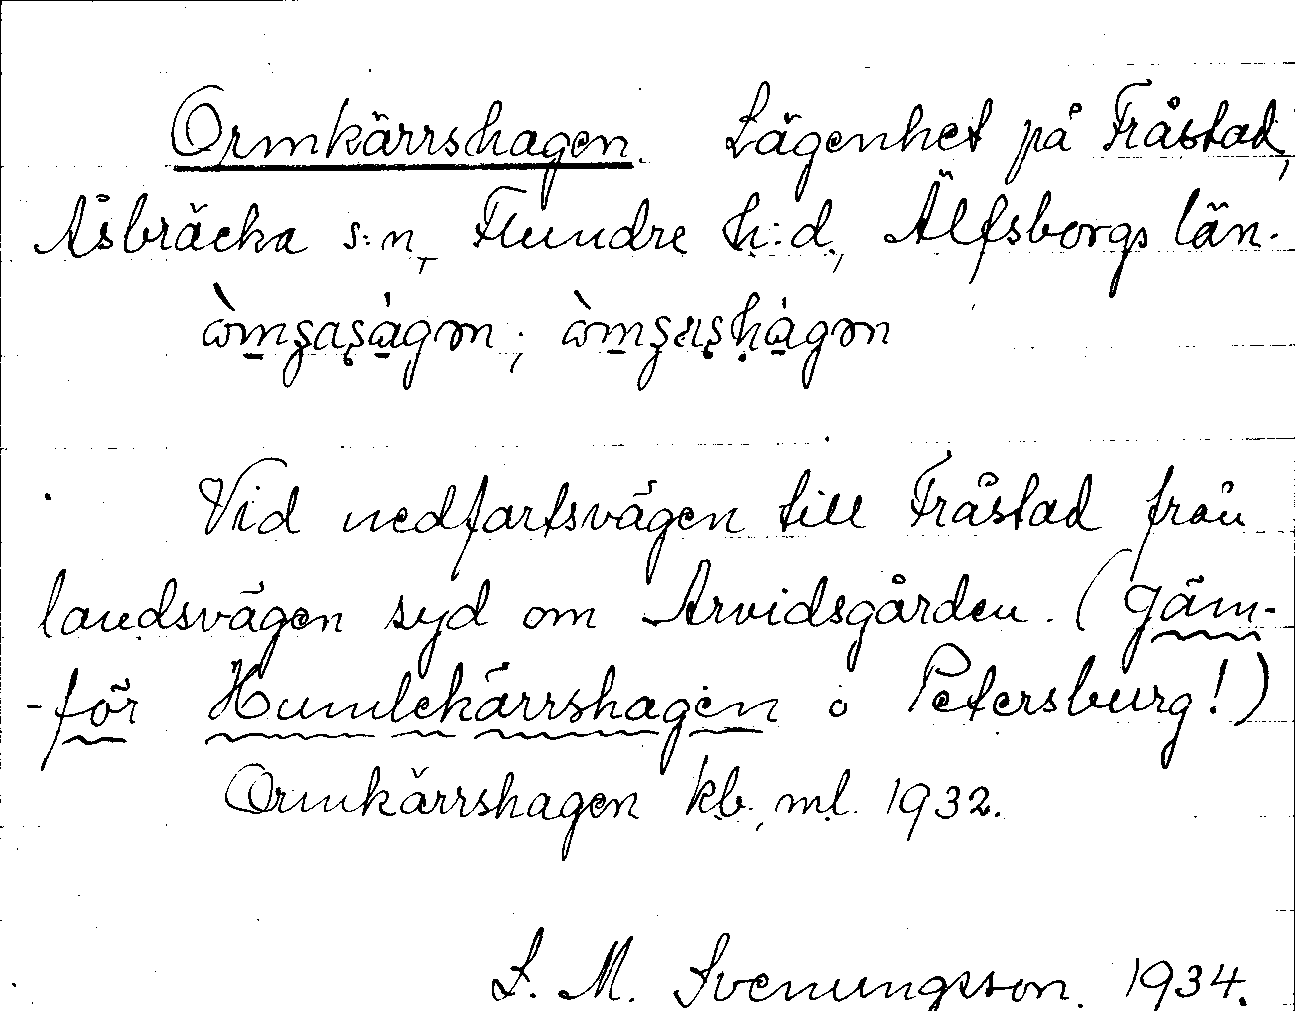 Ormkärrshagen. Lägenhet på Fråstad,
Åsbräcka s:n, Flundre h:d, Älfsborgs län.
Vid nedfartsvägen till Fråstad från
landsvägen syd om Arvidsgården. (Jäm-
-för Humlekärrshagen o Petersburg!)
Ormkärrshagen kb, ml. 1932.
S. M. Svenungsson. 1934.